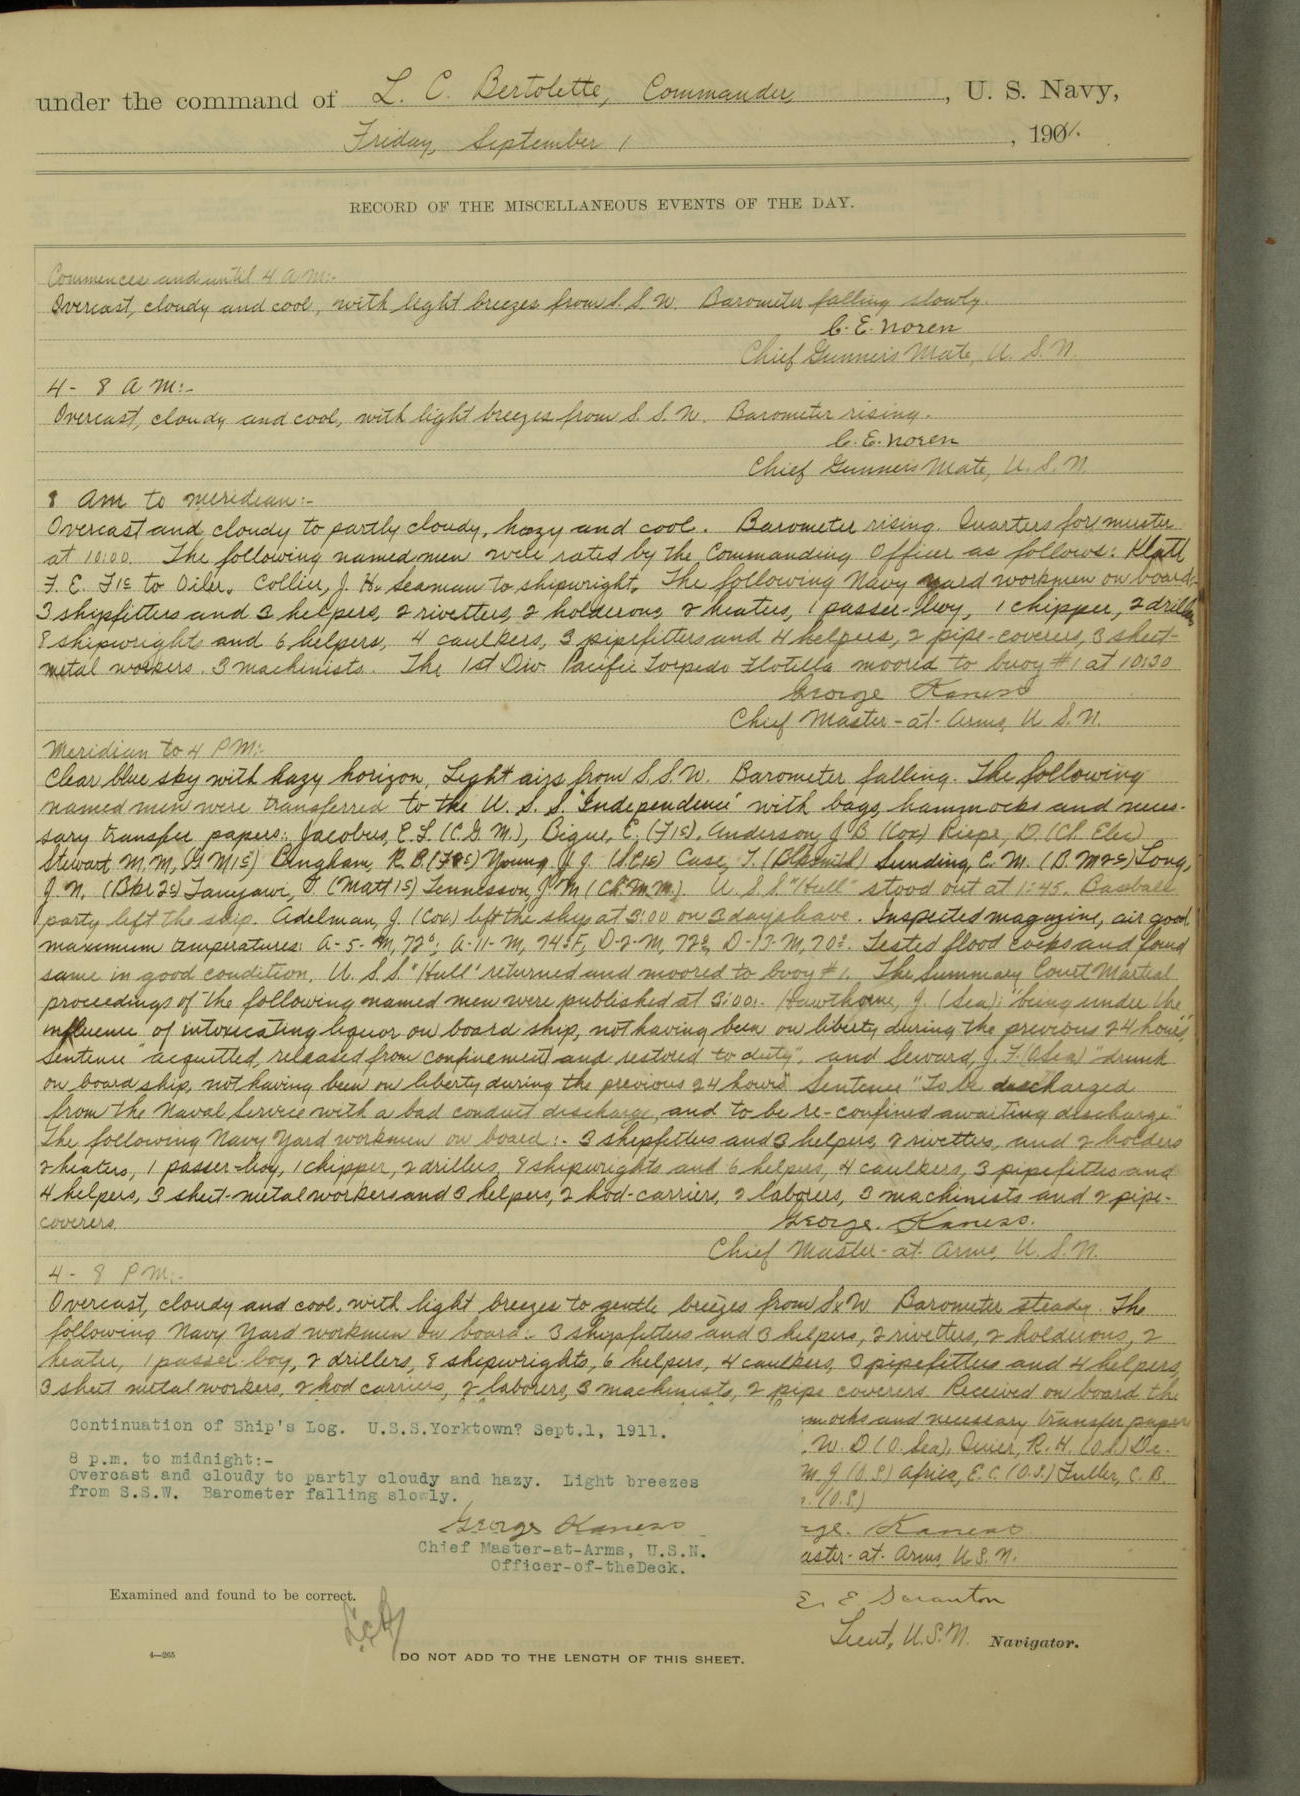 under the command of L. C. Bertolette, Commander, U. S. Navy,
Friday, September 1, 1901.
RECORD OF THE MISCELLANEOUS EVENTS OF THE DAY.
Commences and until 4 A M:-
Overcast, cloudy and cool, with light breezes from S. S. W. Barometer falling slowly.
C. E. Noren
Chief Gunner's Mate, U. S. N.
4 - 8 A M:-
Overcast, cloudy and cool, with light breezes from S. S. W. Barometer rising.
C. E. Noren
Chief Gunner's Mate, U. S. N.
8 AM to meridian:-
Overcast and cloudy to partly cloudy, hazy and cool. Barometer rising. Quarters for muster
at 10:00. The following named men were rated by the Commanding Officer as follows: Klatt
F. E. F1c to Oiler. Collier, J. H. Seaman to shipwright. The following Navy yard workmen on board:-
3 shipfitters and 3 helpers, 2 rivetters, 2 holderons, 2 heaters, 1 passer-boy, 1 chipper, 2 drillers
8 shipwrights and 6 helpers, 4 caulkers, 3 pipefitters and 4 helpers, 2 pipe-coverers, 3 sheet-
metal workers. 3 machinists. The 1st Div. Pacific Torpedo Flotilla moored to buoy #1 at 10:30
George Kaness
Chief Master-at-Arms, U. S. N.
Meridian to 4 P M:-
Clear blue sky with hazy horizon, Light airs from S. S. W. Barometer falling. The following
named men were transferred to the U. S. S. "Independence" with bags, hammocks and neces-
sary transfer papers: Jacobus, E. L. (C. G. M.), Bigue, E. (F1c), Anderson, J. B. (Cox) Riepe, D. (Ch. Elec)
Stewart, M. M. (G M 1c) Bingham, R. B. (F2c) Young, J. (S.F.1c) Case, T. (Blksmith) Sunding, C. M. (B. M 2c) Long,
J. N. (Bkr 2c) (Matt 1c) Tennesson, J. M (Ch. M. M.) U. S. S. "Hull" stood out at 1:45. Baseball
party left the ship. Adelman, J. (Cox) left the ship at 3:00 on 3 days leave. Inspected magazine, air good
maximum temperatures: A-5-M, 72°; A-11-M, 74° F, D-2-M, 72°, D-17-M, 70°. Tested flood cocks and found
same in good condition. U. S. S. "Hull" returned and moored to buoy #1. The Summary Court Martial
proceedings of the following named men were published at 3:00:- Hawthorne, J. (Sea): "being under the
influence of intoxicating liquor on board ship, not having been on liberty during the previous 24 hours",
Sentence "acquitted, released from confinement and restored to duty", and Seward, J. F. (OSea) "drunk
on board ship, not having been on liberty during the previous 24 hours" Sentence "To be discharged
from the Naval Service with a bad conduct discharge, and to be re-confined awaiting discharge."
The following Navy Yard workmen on board:- 3 shipfitters and 3 helpers, 2 rivetters, and 2 holders
2 heaters, 1 passer-boy, 1 chipper, 2 drillers, 8 shipwrights and 6 helpers, 4 caulkers, 3 pipefitters and
4 helpers, 3 sheet-metal workers and 3 helpers, 2 hod-carriers, 2 laborers, 3 machinists and 2 pipe-
coverers.
George Kaness.
Chief Master-at-Arms, U. S. N.
4 - 8 P M:-
Overcast, cloudy and cool, with light breezes to gentle breezes from SxW Barometer steady. The
following Navy Yard workmen on board:- 3 shipfitters and 3 helpers, 2 rivetters, 2 holderons, 2
heater, 1 passer-boy, 2 drillers, 8 shipwrights, 6 helpers, 4 caulkers, 3 pipefitters and 4 helpers,
3 sheet metal workers, 2 hod carriers, 2 laborers, 3 machinists, 2 pipe coverers. Received on board the
mocks and necessary transfer papers
W. D (O. Sea), R. H. (O.S.) De
M. J (O.S) Africa, E. C. (O.S.) Fuller, C. B.
(O.S)
rge. Kaness
aster-at-Arms, U. S. N.
Continuation of Ship's Log. U.S.S.Yorktown? Sept.1, 1911.
8 p.m. to midnight:-
Overcast and cloudy to partly cloudy and hazy. Light breezes
from S.S.W. Barometer falling slowly.
George Kaness
Chief Master-at-Arms, U.S.N.
Officer-of-theDeck.
Examined and found to be correct.
LCB
E. E. Scranton
Lieut, U.S.N. Navigator.
4—265
DO NOT ADD TO THE LENGTH OF THIS SHEET.